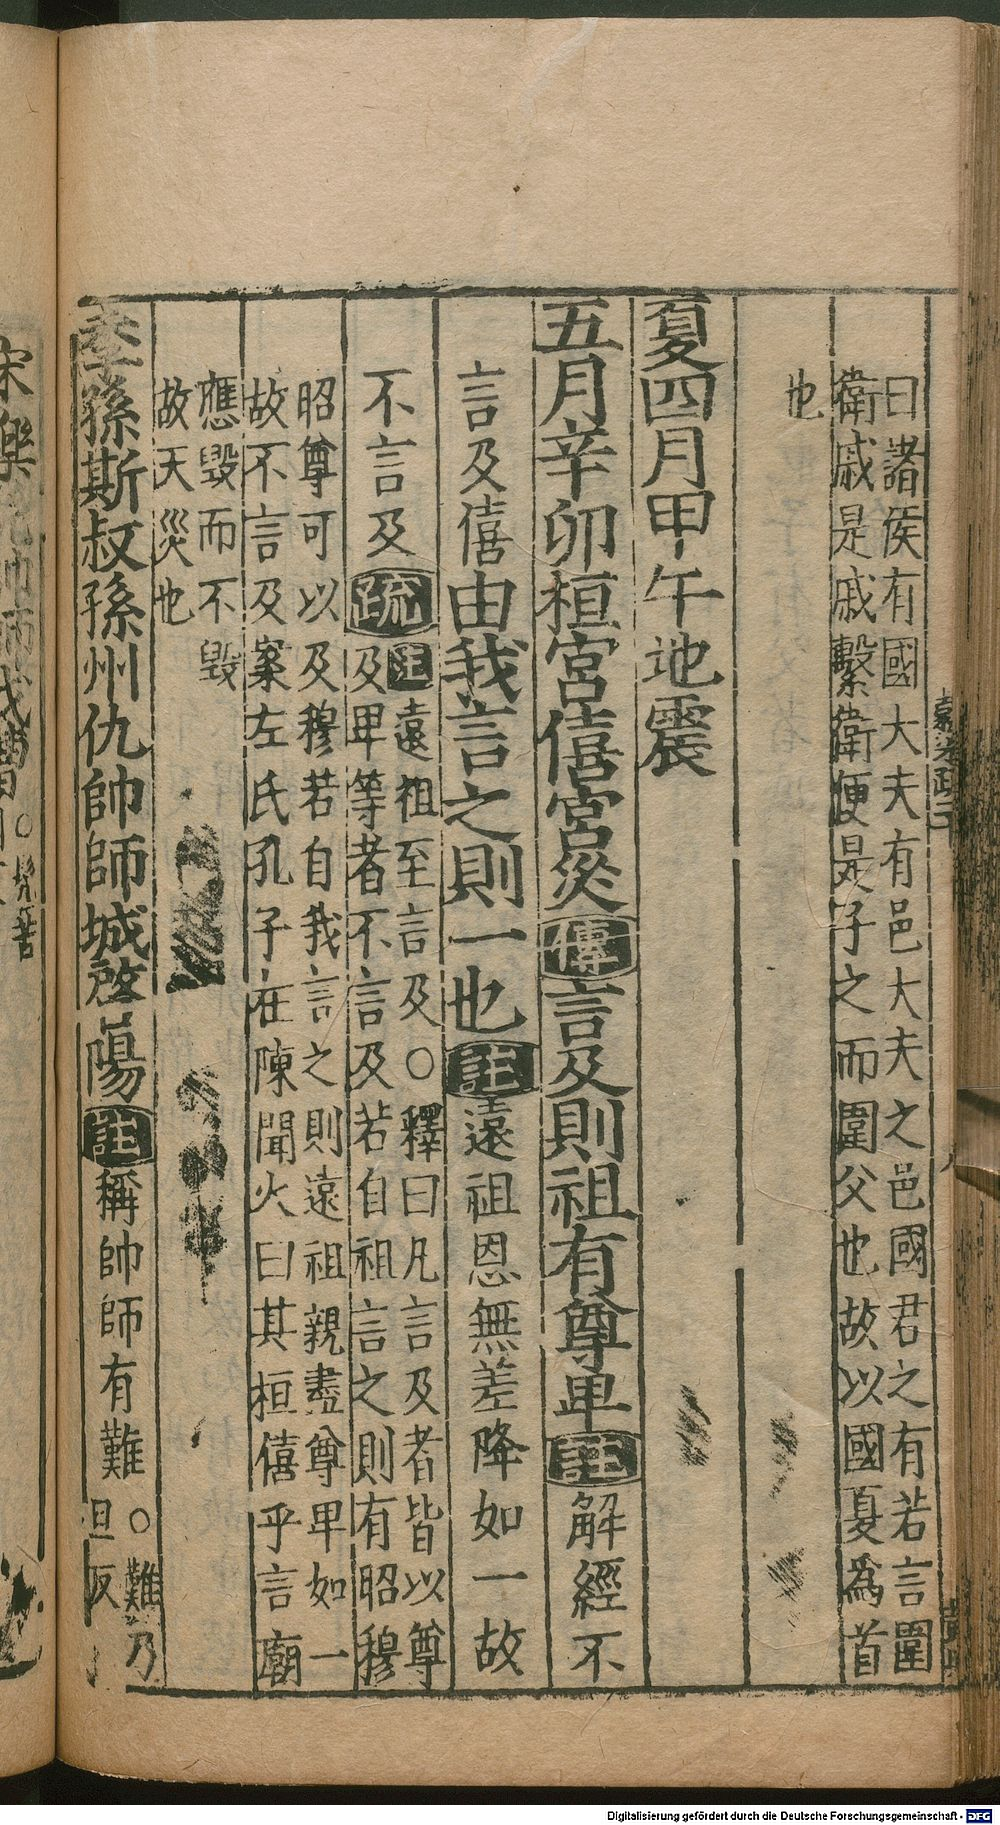 曰諸侯有國大夫有邑大夫之邑國君之有若言圍
衛戚是戚繫衛便是子之而圍父也故以國夏爲首
也
夏四月甲午地震
五月辛卯桓宮僖宮災傳言及則祖有尊卑註解經不
言及僖由我言之則一也註遠祖恩無差降如一故
不言及疏註遠祖至言及○釋曰凡言及者皆以尊
及卑等者不言及若自祖言之則有昭穆
昭尊可以及穆若自我言之則遠祖親盡尊卑如一
故不言及案左氏孔子在陳聞火曰其桓僖乎言廟
應毀而不毀
故天災也
季孫斯叔孫州仇帥師城啓陽註稱帥師有難○難乃
旦反
Digitalisierung gefördert durch die Deutsche Forschungsgemeinschaft - DFG